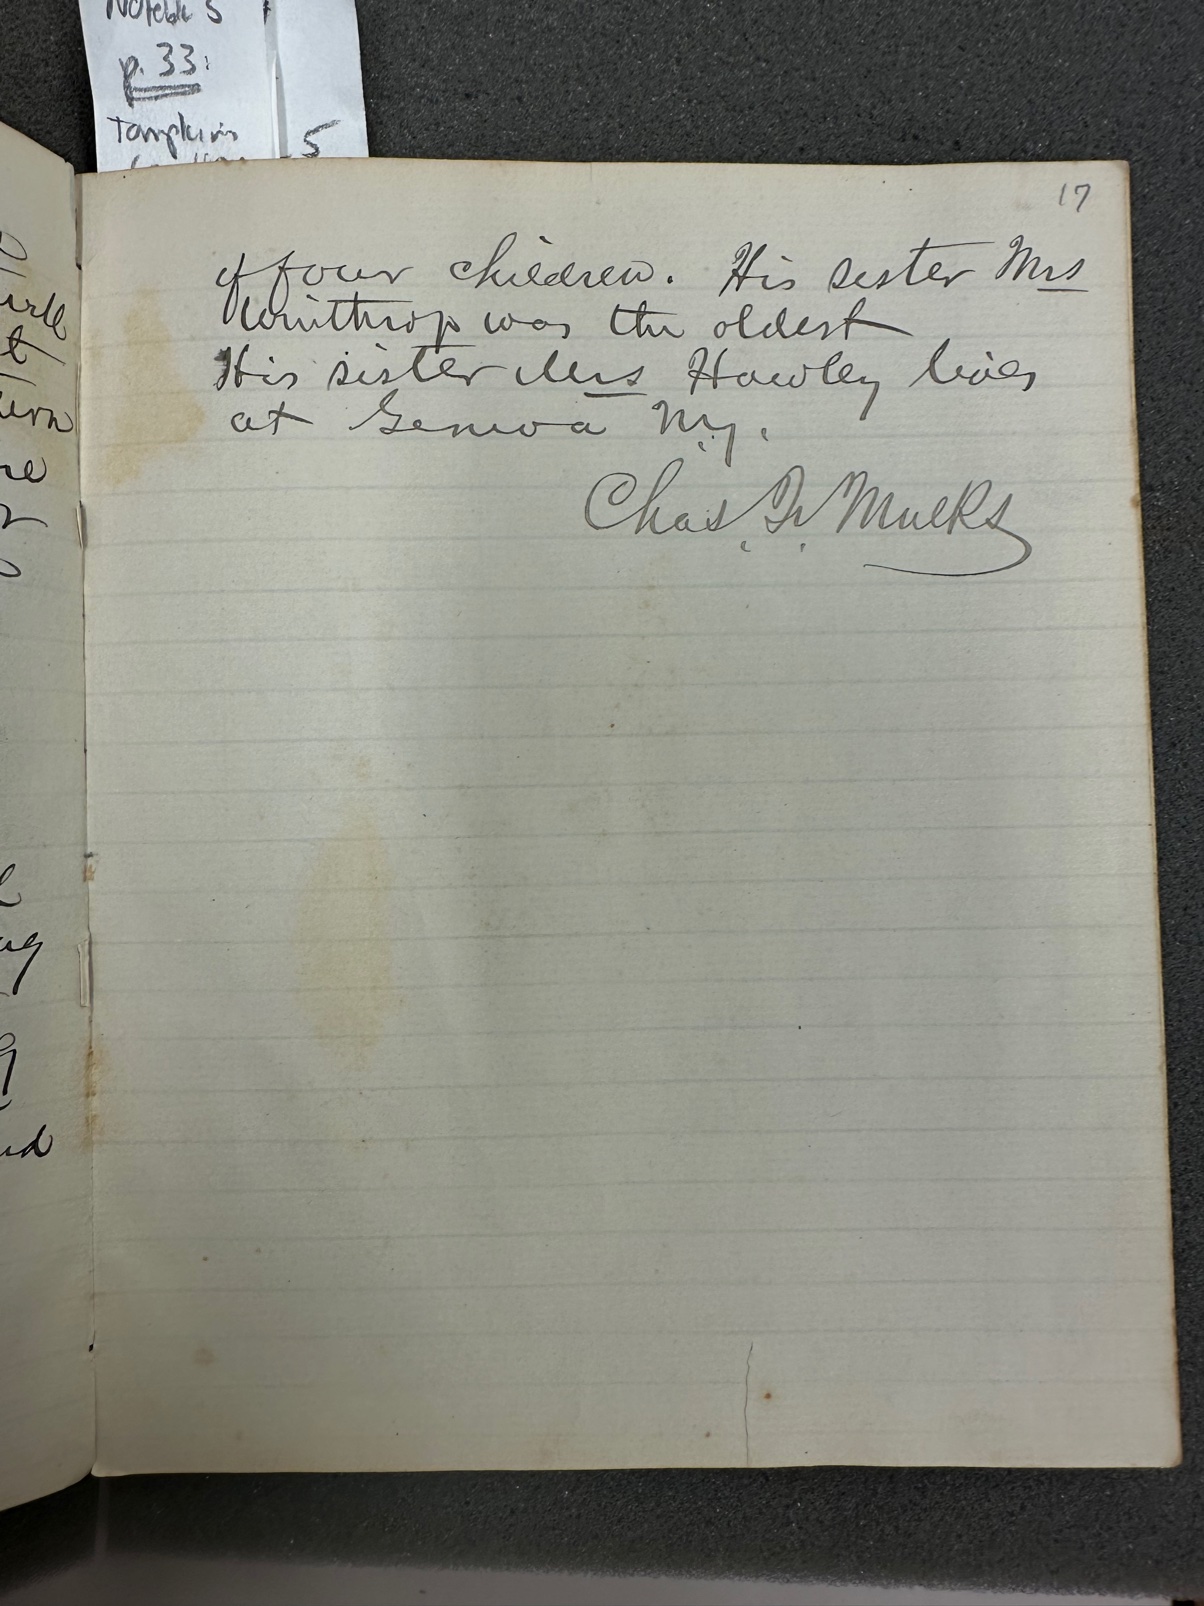 p. 33
Tompkins
5
17
of four children. His sister Mrs
Winthrop was the oldest
His sister Mrs Hawley lives
at Geneva N.y.
Chas. F. Mulks